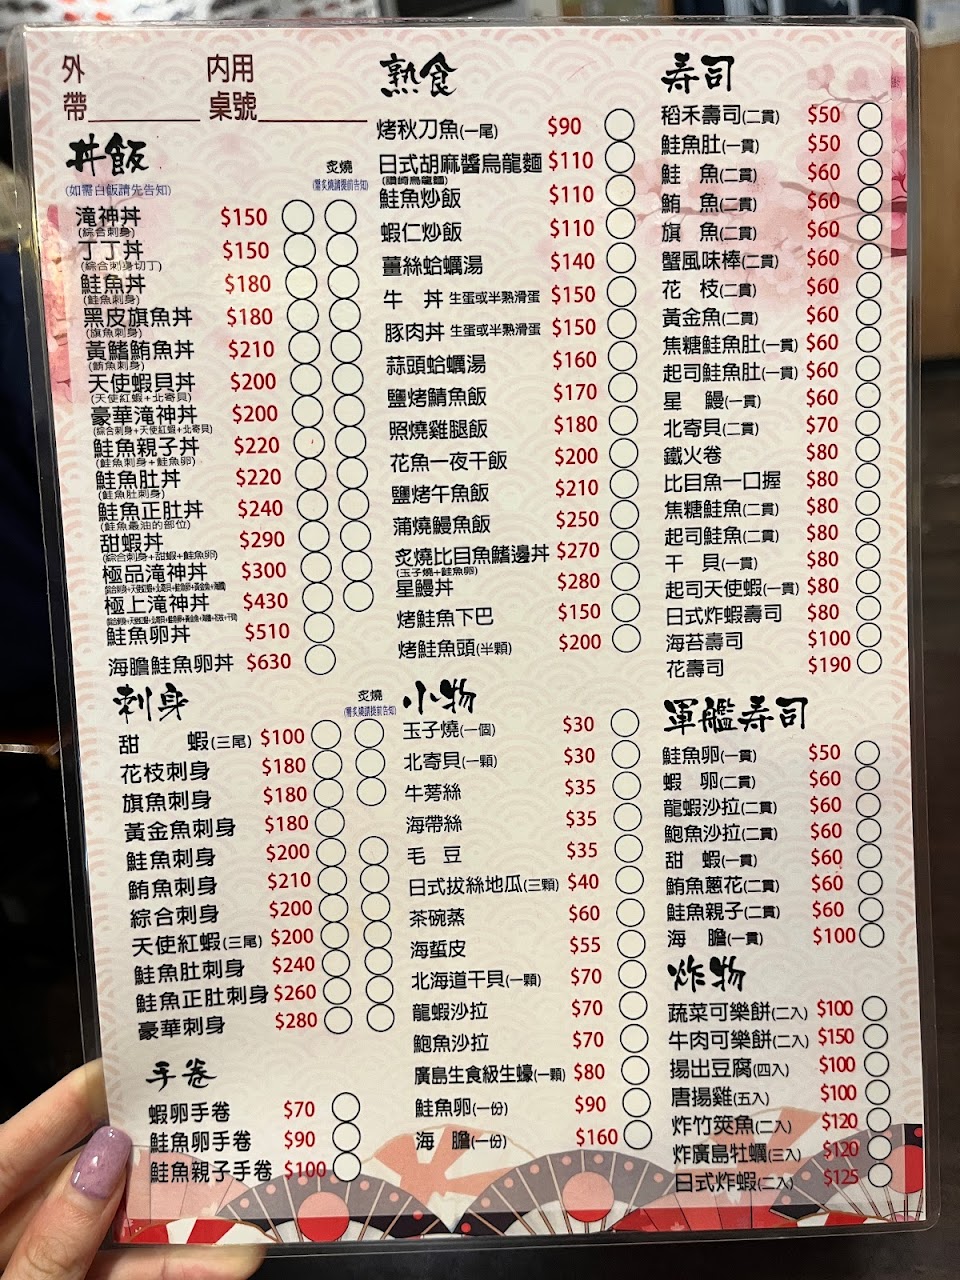 外帶________ 內用桌號________
丼飯
(如需白飯請先告知)
炙燒
(需炙燒請提前告知)
滝神丼 $150
(綜合刺身)
丁丁丼 $150
(綜合刺身切丁)
鮭魚丼 $180
(鮭魚刺身)
黑皮旗魚丼 $180
(旗魚刺身)
黃鰭鮪魚丼 $210
(鮪魚刺身)
天使蝦貝丼 $200
(天使紅蝦+北寄貝)
豪華滝神丼 $200
(綜合刺身+天使紅蝦+北寄貝)
鮭魚親子丼 $220
(鮭魚刺身+鮭魚卵)
鮭魚肚丼 $220
(鮭魚肚刺身)
鮭魚正肚丼 $240
(鮭魚最油的部位)
甜蝦丼 $290
(綜合刺身+甜蝦+鮭魚卵)
極品滝神丼 $300
極上滝神丼 $430
鮭魚卵丼 $510
海膽鮭魚卵丼 $630
刺身
炙燒
(需炙燒請提前告知)
甜 蝦(三尾) $100
花枝刺身 $180
旗魚刺身 $180
黃金魚刺身 $180
鮭魚刺身 $200
鮪魚刺身 $210
綜合刺身 $200
天使紅蝦(三尾) $200
鮭魚肚刺身 $240
鮭魚正肚刺身 $260
豪華刺身 $280
手卷
蝦卵手卷 $70
鮭魚卵手卷 $90
鮭魚親子手卷 $100
熟食
烤秋刀魚(一尾) $90
日式胡麻醬烏龍麵 $110
(讚岐烏龍麵)
鮭魚炒飯 $110
蝦仁炒飯 $110
薑絲蛤蠣湯 $140
牛 丼 生蛋或半熟滑蛋 $150
豚肉丼 生蛋或半熟滑蛋 $150
蒜頭蛤蠣湯 $160
鹽烤鯖魚飯 $170
照燒雞腿飯 $180
花魚一夜干飯 $200
鹽烤午魚飯 $210
蒲燒鰻魚飯 $250
炙燒比目魚鰭邊丼 $270
(玉子燒+鮭魚卵)
星鰻丼 $280
烤鮭魚下巴 $150
烤鮭魚頭(半顆) $200
小物
玉子燒(一個) $30
北寄貝(一顆) $30
牛蒡絲 $35
海帶絲 $35
毛 豆 $35
日式拔絲地瓜(三顆) $40
茶碗蒸 $60
海蜇皮 $55
北海道干貝(一顆) $70
龍蝦沙拉 $70
鮑魚沙拉 $70
廣島生食級生蠔(一顆) $80
鮭魚卵(一份) $90
海 膽(一份) $160
寿司
稻禾壽司(二貫) $50
鮭魚肚(一貫) $50
鮭 魚(二貫) $60
鮪 魚(二貫) $60
旗 魚(二貫) $60
蟹風味棒(二貫) $60
花 枝(二貫) $60
黃金魚(二貫) $60
焦糖鮭魚肚(一貫) $60
起司鮭魚肚(一貫) $60
星 鰻(一貫) $60
北寄貝(二貫) $70
鐵火卷 $80
比目魚一口握 $80
焦糖鮭魚(二貫) $80
起司鮭魚(二貫) $80
干 貝(一貫) $80
起司天使蝦(一貫) $80
日式炸蝦壽司 $80
海苔壽司 $100
花壽司 $190
軍艦寿司
鮭魚卵(一貫) $50
蝦 卵(二貫) $60
龍蝦沙拉(二貫) $60
鮑魚沙拉(二貫) $60
甜 蝦(一貫) $60
鮪魚蔥花(二貫) $60
鮭魚親子(二貫) $60
海 膽(一貫) $100
炸物
蔬菜可樂餅(二入) $100
牛肉可樂餅(二入) $150
揚出豆腐(四入) $100
唐揚雞(五入) $100
炸竹筴魚(二入) $120
炸廣島牡蠣(三入) $120
日式炸蝦(二入) $125